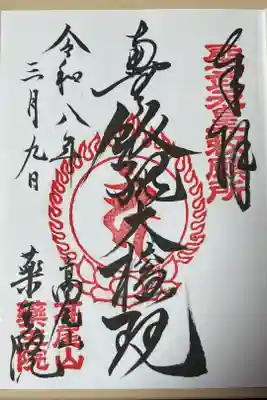 奉拝
飯縄大権現
令和八年
三月九日
高尾山
藥王院